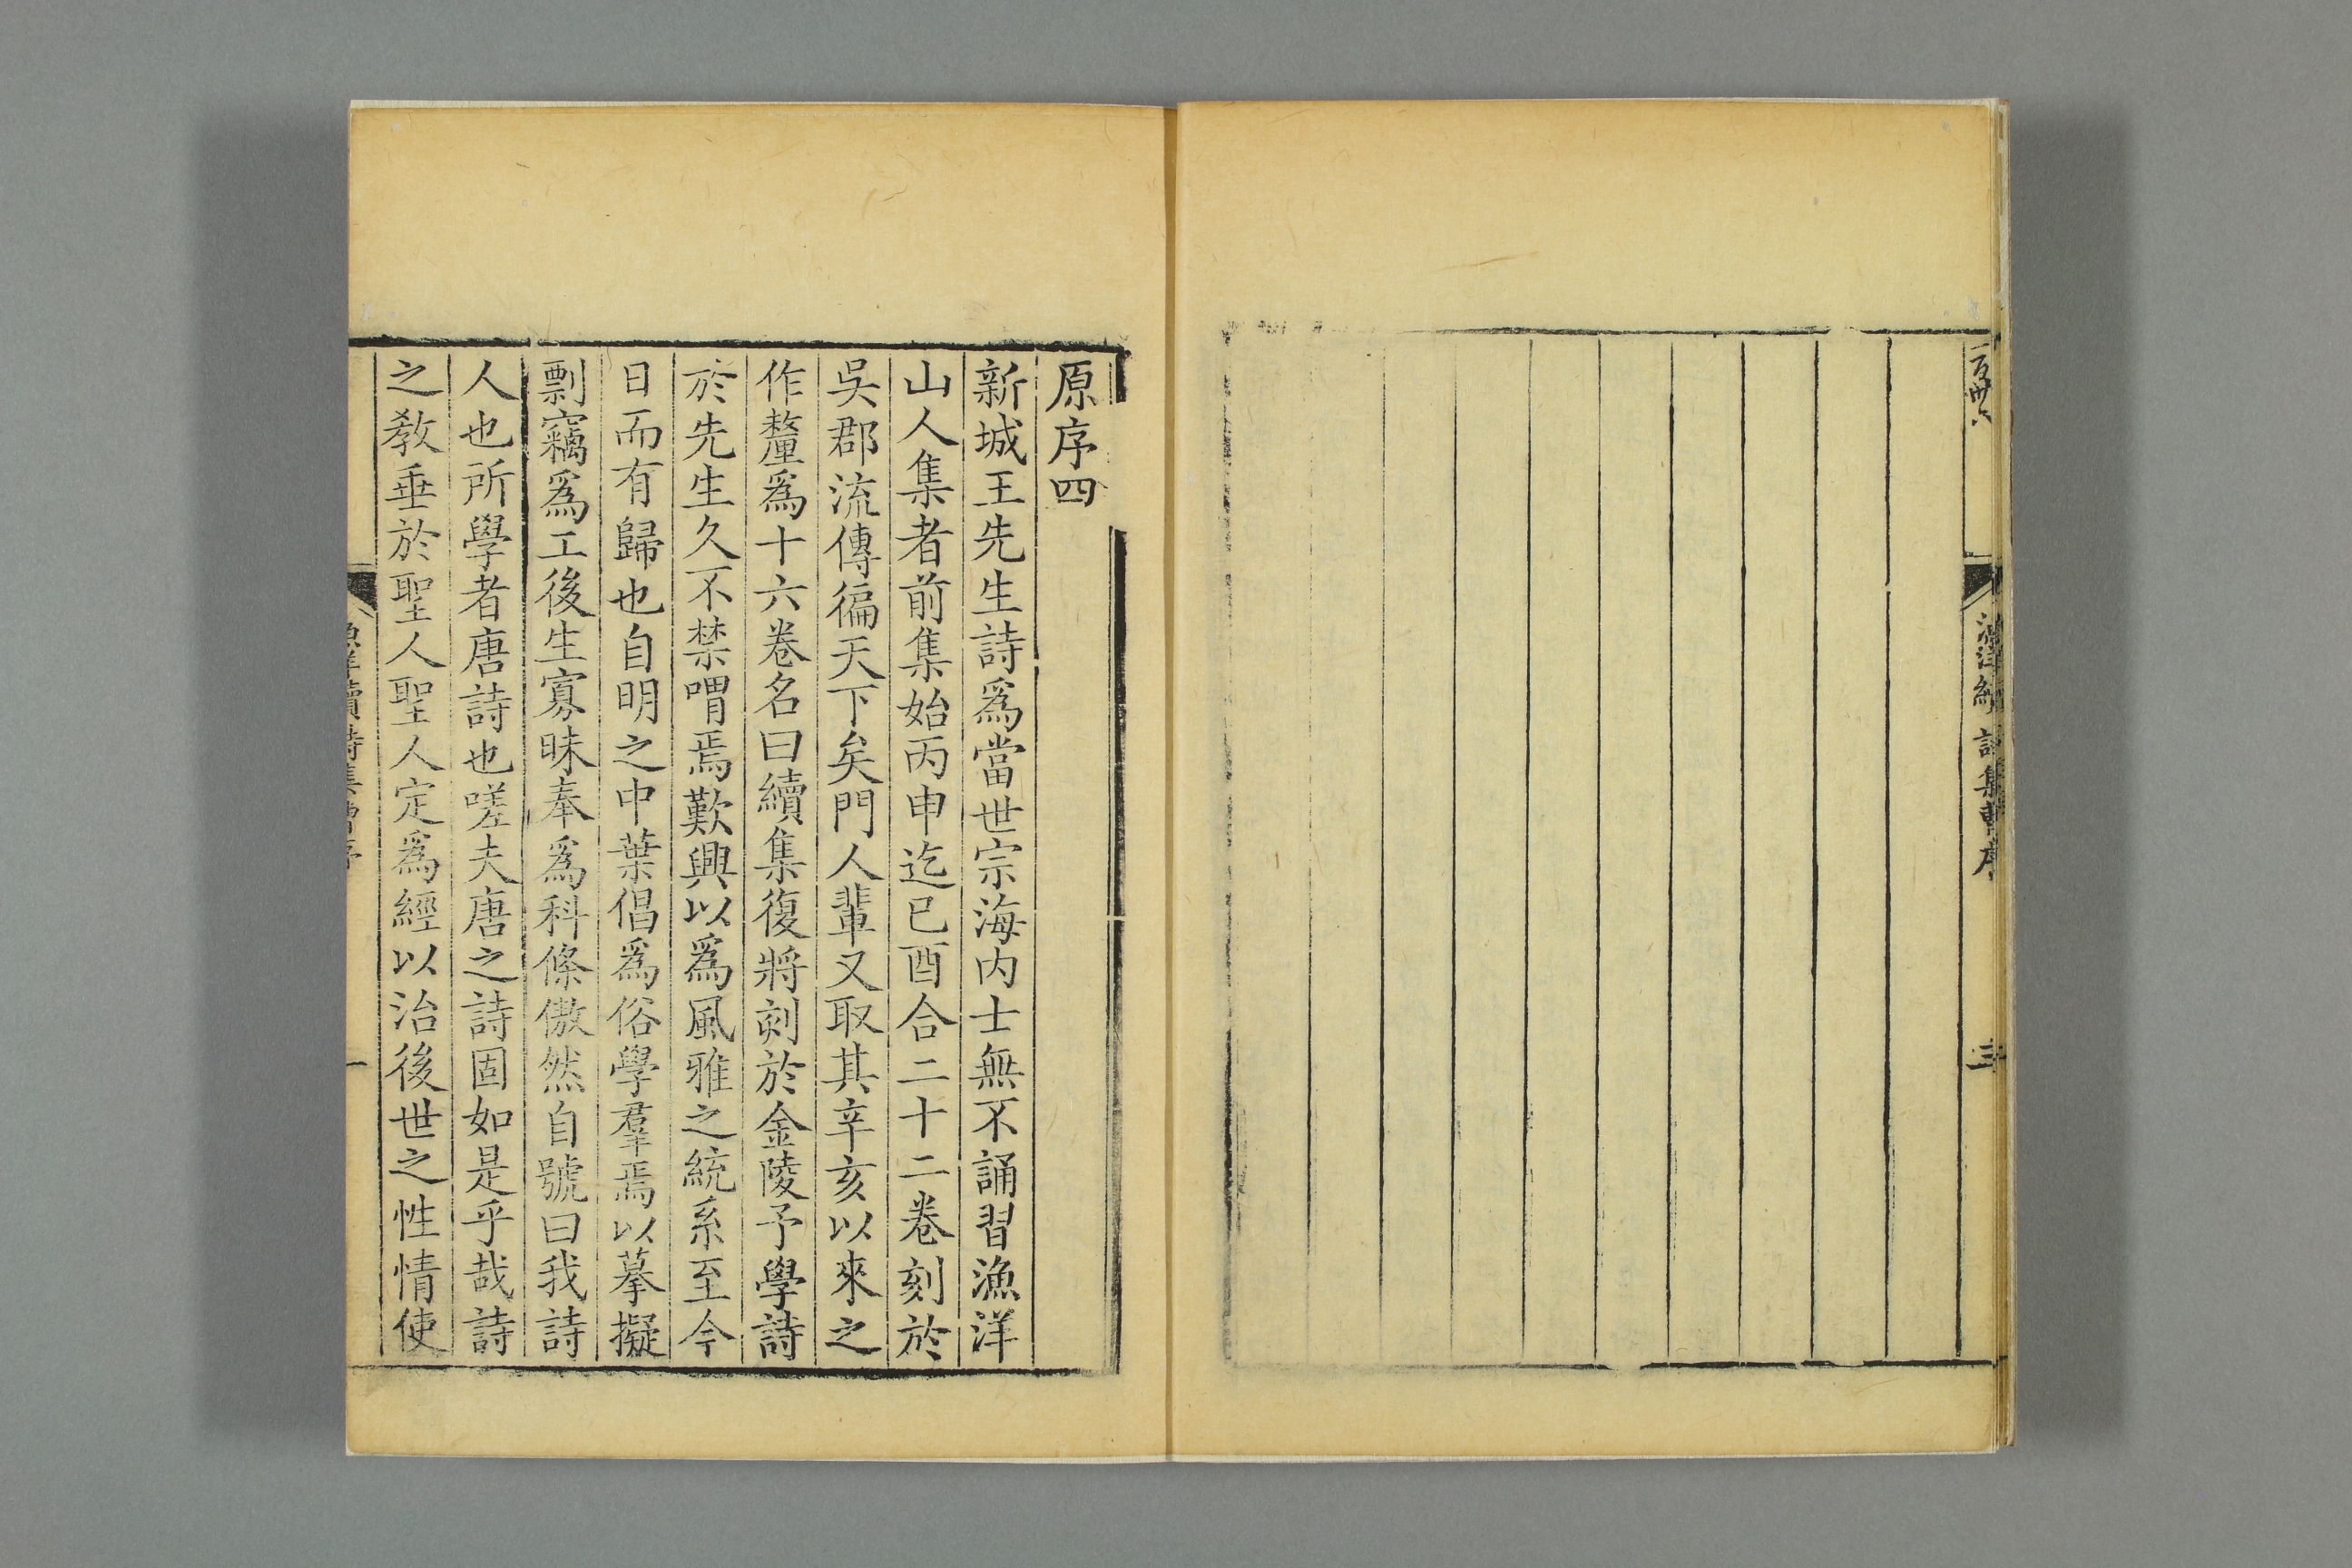 原序四
新城王先生詩爲當世宗海内士無不誦習漁洋
山人集者前集始丙申迄己酉合二十二卷刻於
吳郡流傳徧天下矣門人輩又取其辛亥以來之
作釐爲十六卷名曰續集復將刻於金陵予學詩
於先生久不禁喟焉歎興以爲風雅之統系至今
日而有歸也自明之中葉倡爲俗學羣焉以摹擬
剽竊爲工後生寡昧奉爲科條傲然自號曰我詩
人也所學者唐詩也嗟夫唐之詩固如是乎哉詩
之教垂於聖人聖人定爲經以治後世之性情使